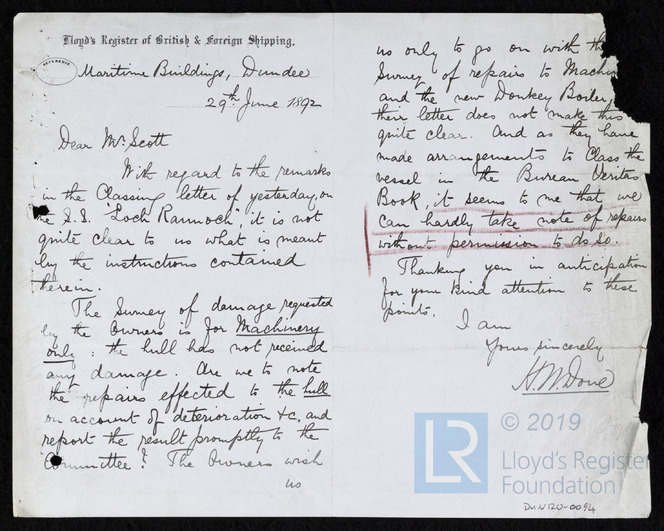 Lloyd's Register of British & Foreign Shipping.
REFERENCE
Maritime Buildings, Dundee
29th June 1892
Dear Mr Scott
With regard to the remarks
in the Classing letter of yesterday, on
the S.S. "Loch Rannoch", it is not
quite clear to us what is meant
by the instructions contained
therein.
The Survey of damage requested
by the Owners is for Machinery
only: the hull has not received
any damage. Are we to note
the repairs effected to the hull
on account of deterioration &c, and
report the result promptly to the
Committee? The Owners wish
us
us only to go on with th
Survey of repairs to Machin
and the new Donkey Boiler,
their letter does not make this
quite clear. And as they have
made arrangements to Class the
vessel in the Bureau Veritas
Book, it seems to me that we
can hardly take note of repairs
without permission to do so.
Thanking you in anticipation
for your kind attention to these
points.
I am
Yours sincerely
H.W. Dove
LR © 2019
Lloyd's Register
Foundation
DUN120-0094